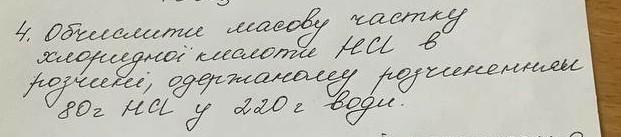 4. Обчислити масову частку
хлоридної кислоти HCl в
розчині, одержаному розчиненням
80г HCl у 220г води.